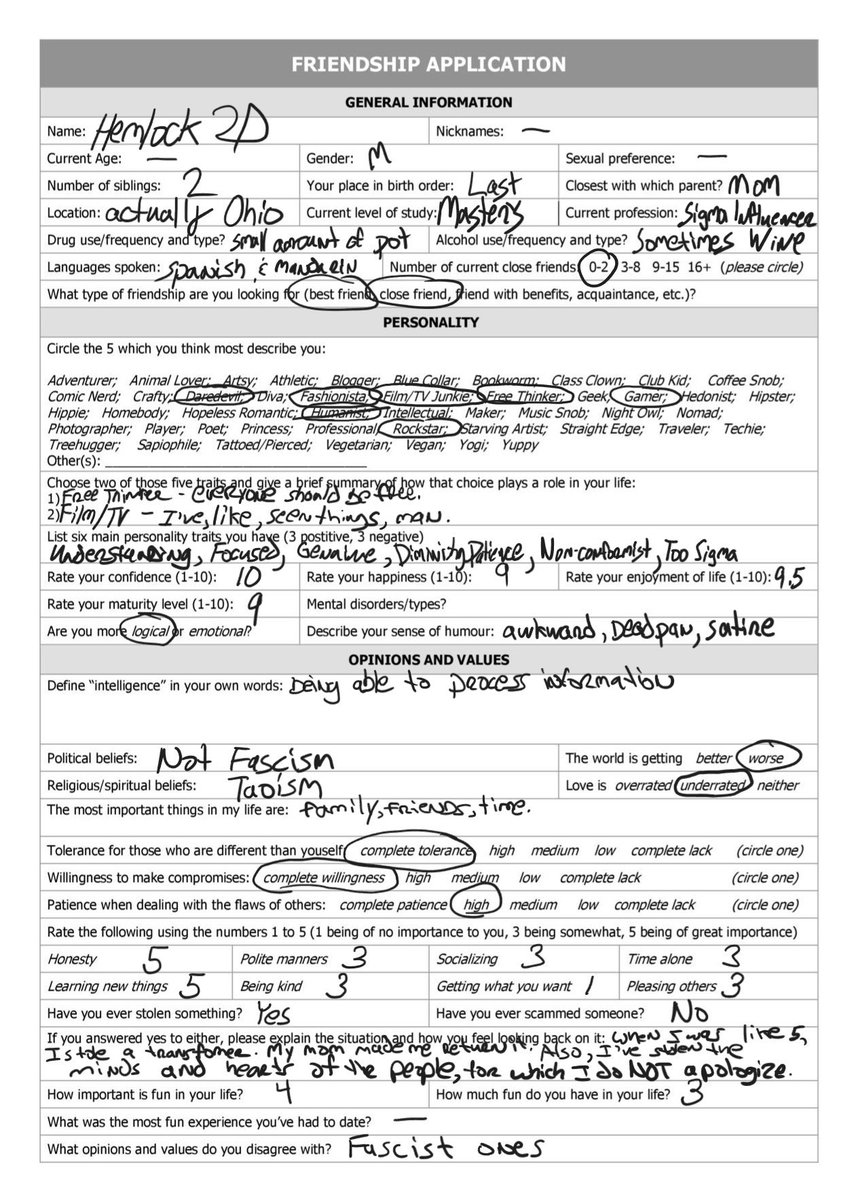 FRIENDSHIP APPLICATION
GENERAL INFORMATION
Name: Hemlock 2D Nicknames: —
Current Age: — Gender: M Sexual preference: —
Number of siblings: 2 Your place in birth order: Last Closest with which parent? Mom
Location: actually Ohio Current level of study: Masters Current profession: Sigma Influencer
Drug use/frequency and type? Small amount of pot Alcohol use/frequency and type? Sometimes Wine
Languages spoken: Spanish & Mandarin Number of current close friends: 0-2 3-8 9-15 16+ (please circle)
What type of friendship are you looking for (best friend, close friend, friend with benefits, acquaintance, etc.)?
PERSONALITY
Circle the 5 which you think most describe you:
Adventurer; Animal Lover; Artsy; Athletic; Blogger; Blue Collar; Bookworm; Class Clown; Club Kid; Coffee Snob;
Comic Nerd; Crafty; Daredevil; Diva; Fashionista; Film/TV Junkie; Free Thinker; Geek; Gamer; Hedonist; Hipster;
Hippie; Homebody; Hopeless Romantic; Humanist; Intellectual; Maker; Music Snob; Night Owl; Nomad;
Photographer; Player; Poet; Princess; Professional; Rockstar; Starving Artist; Straight Edge; Traveler; Techie;
Treehugger; Sapiophile; Tattoed/Pierced; Vegetarian; Vegan; Yogi; Yuppy
Other(s):
Choose two of those five traits and give a brief summary of how that choice plays a role in your life:
1) Free Thinker - everyone should be free.
2) Film/TV - I've, like, seen things, man.
List six main personality traits you have (3 postitive, 3 negative)
Understanding, Focused, Genuine, Patience, Non-conformist, Too Sigma
Rate your confidence (1-10): 10 Rate your happiness (1-10): 9 Rate your enjoyment of life (1-10): 9.5
Rate your maturity level (1-10): 9 Mental disorders/types?
Are you more logical or emotional? Describe your sense of humour: awkward, Deadpan, satire
OPINIONS AND VALUES
Define "intelligence" in your own words: Being able to process information
Political beliefs: Not Fascism The world is getting better worse
Religious/spiritual beliefs: Taoism Love is overrated underrated neither
The most important things in my life are: family, friends, time.
Tolerance for those who are different than youself: complete tolerance high medium low complete lack (circle one)
Willingness to make compromises: complete willingness high medium low complete lack (circle one)
Patience when dealing with the flaws of others: complete patience high medium low complete lack (circle one)
Rate the following using the numbers 1 to 5 (1 being of no importance to you, 3 being somewhat, 5 being of great importance)
Honesty 5 Polite manners 3 Socializing 3 Time alone 3
Learning new things 5 Being kind 3 Getting what you want 1 Pleasing others 3
Have you ever stolen something? Yes Have you ever scammed someone? No
If you answered yes to either, please explain the situation and how you feel looking back on it: When I was like 5,
I stole a transformer. My mom made me return it. Also, I've stolen the
minds and hearts of the people, for which I do NOT apologize.
How important is fun in your life? 4 How much fun do you have in your life? 3
What was the most fun experience you've had to date? —
What opinions and values do you disagree with? Fascist ones